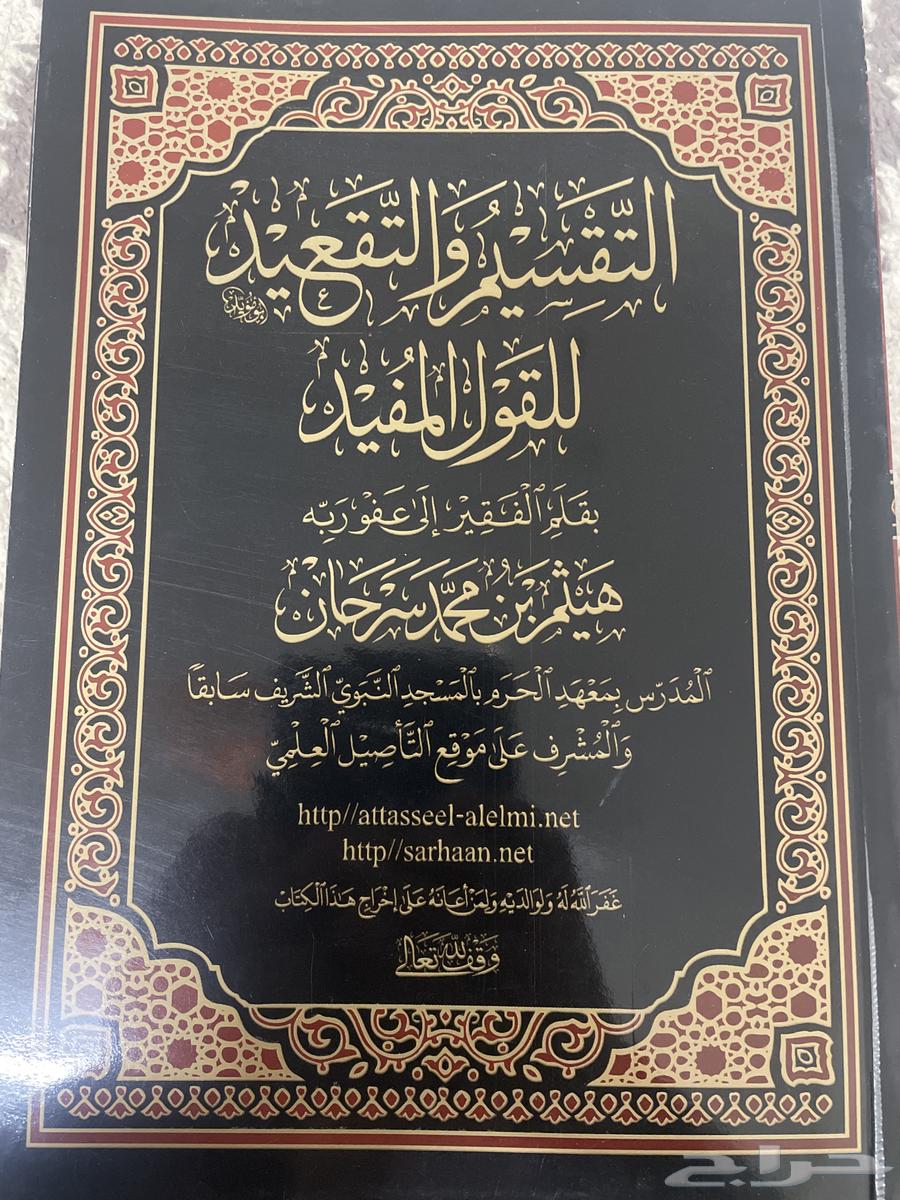 التَّقْسِيْمُ وَالتَّقْعِيْد
لِلقَوْلِ المُفِيْد
بِقَلَمِ ٱلْفَقِيْرِ إِلَىٰ عَفْوِ رَبِّه
هَيْثَم بْنُ مُحَمَّد سَرْحَان
ٱلْمُدَرِّس بِمَعْهَدِ ٱلْحَرَم بِٱلْمَسْجِدِ ٱلنَّبَوِيِّ ٱلشَّرِيف سَابِقًا
وَٱلْمُشْرِف عَلَىٰ مَوْقِعِ ٱلتَّأْصِيلِ ٱلْعِلْمِيِّ
http//attasseel-alelmi.net
http//sarhaan.net
غَفَرَ ٱللَّهُ لَهُ وَلِوَالِدَيْهِ وَلِمَنْ أَعَانَهُ عَلَىٰ إِخْرَاجِ هَٰذَا ٱلْكِتَابْ
وَقْفٌ لِلَّهِ تَعَالَى
حراج